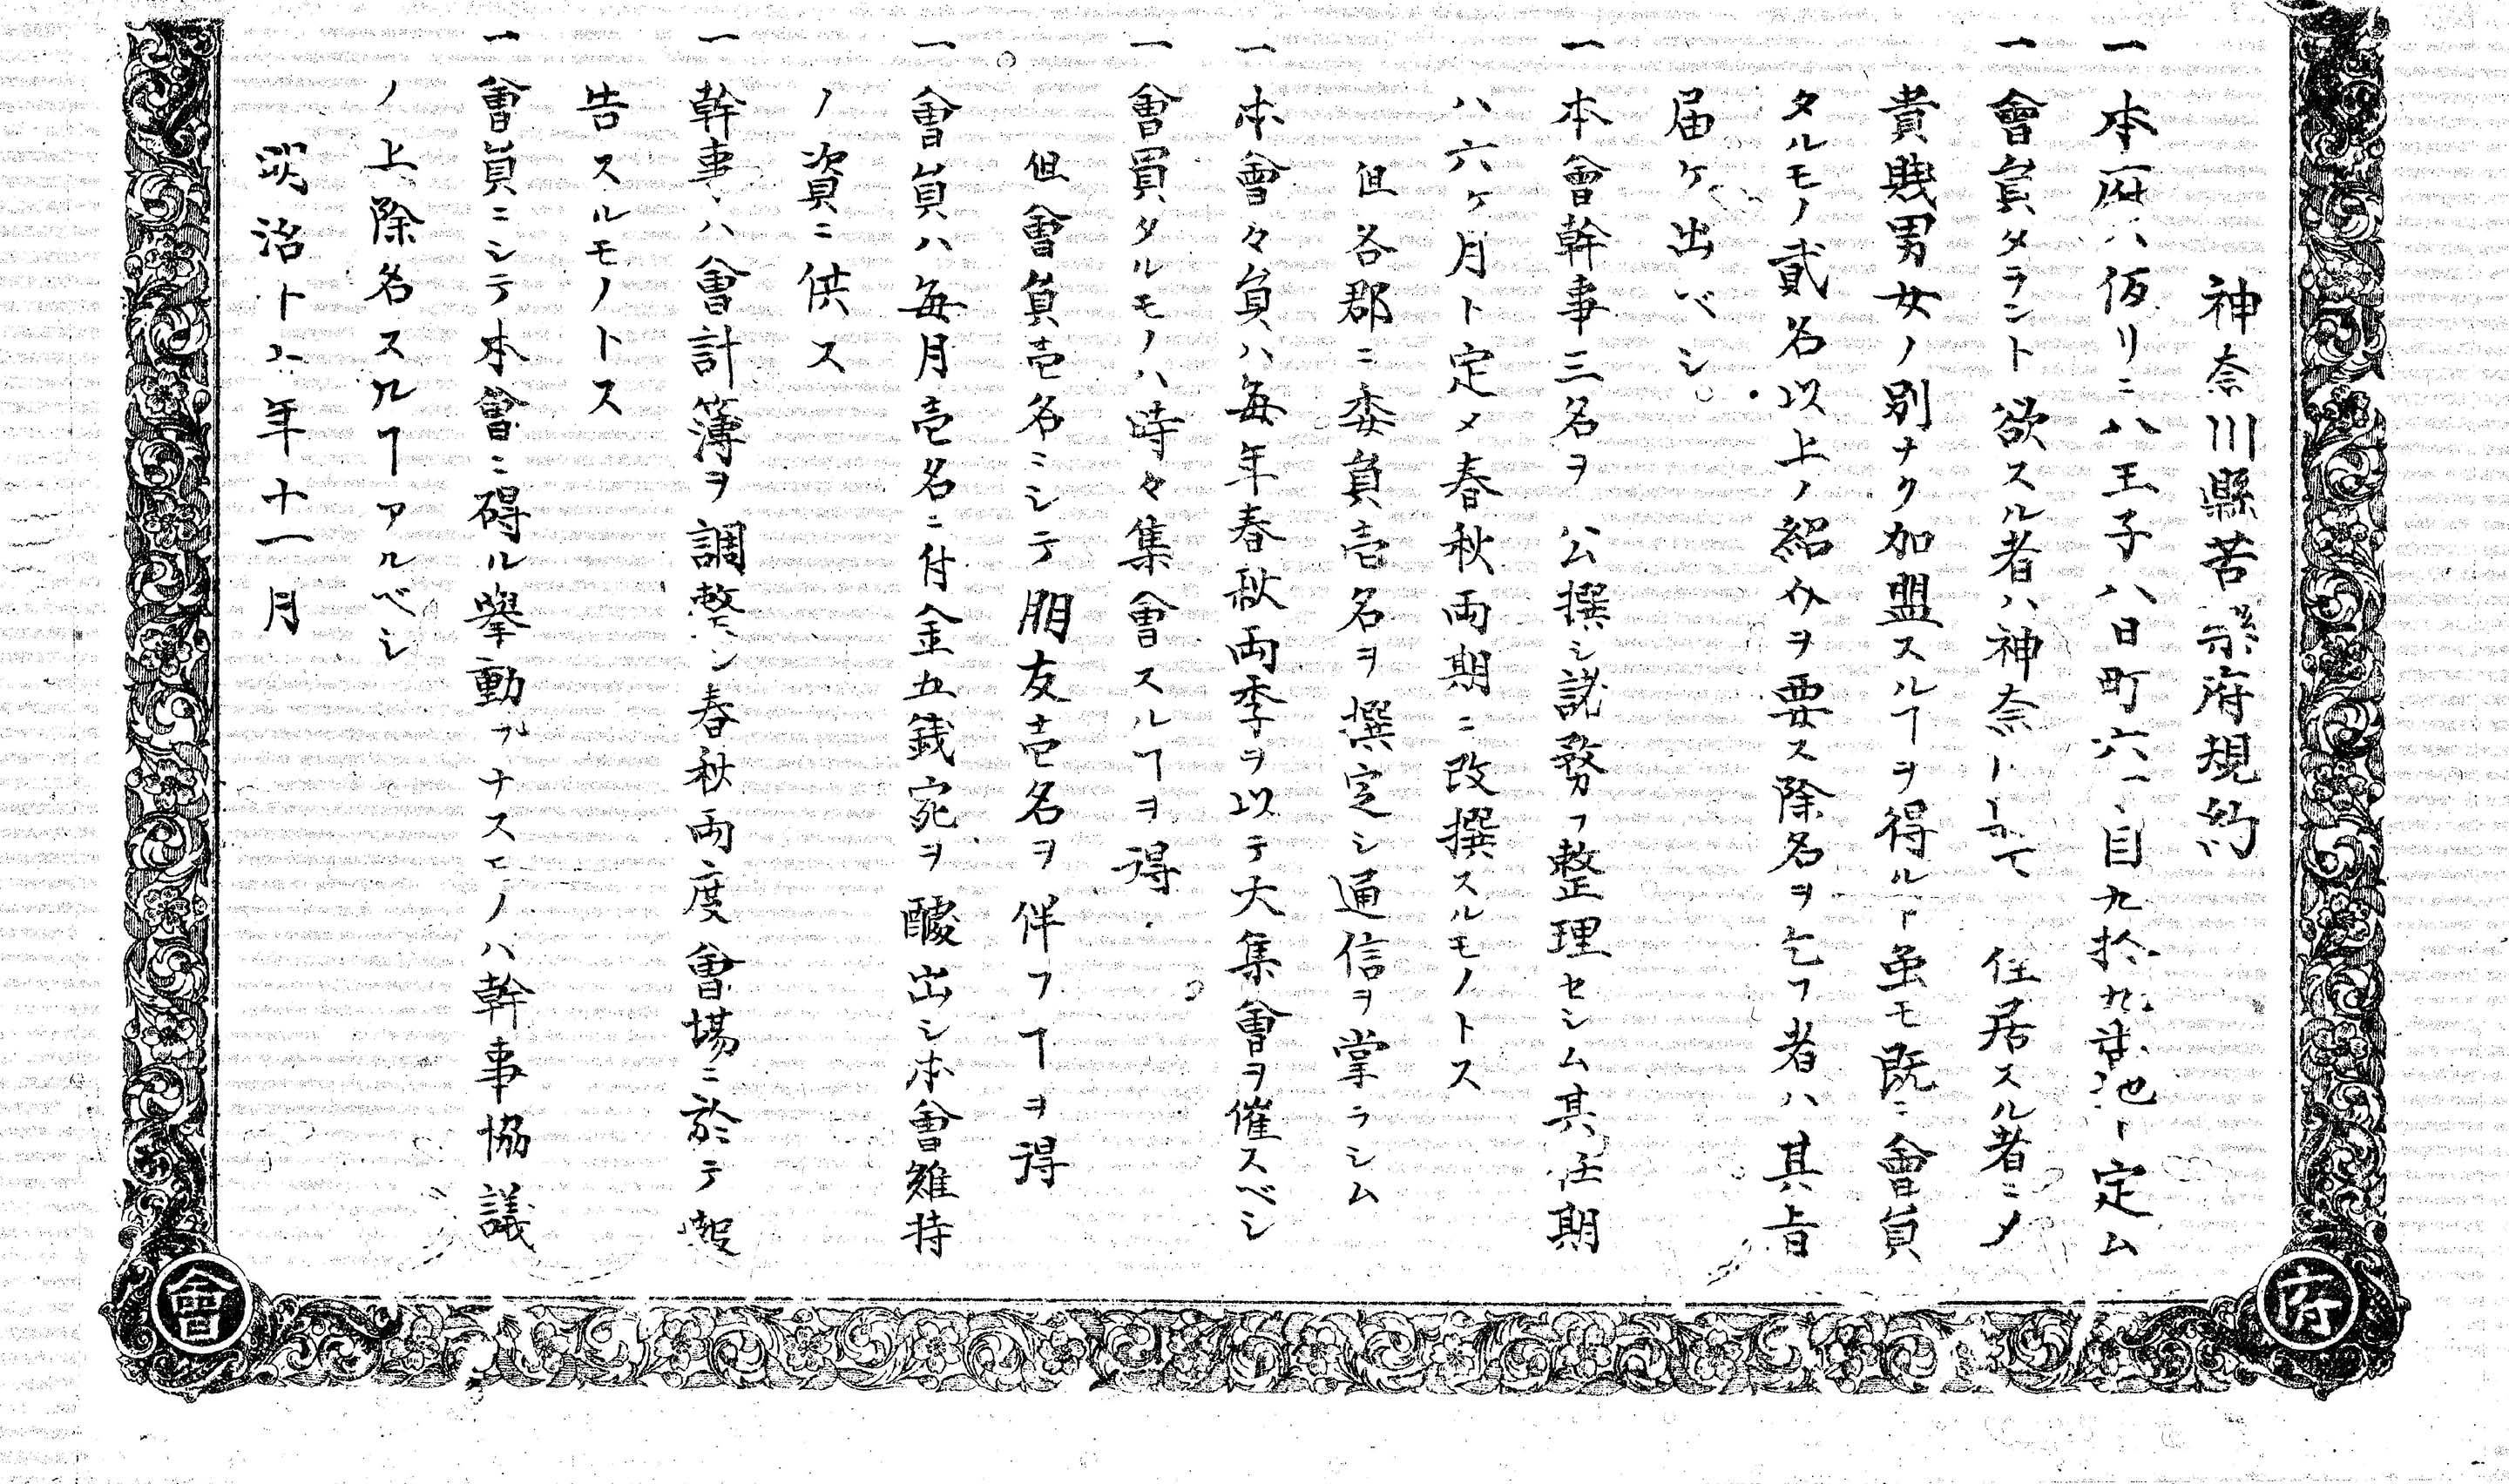 神奈川縣苦楽府規約
一本府ハ仮リニ八王子八日町六 目九拾九番地ト定ム
一會員タラント欲スル者ハ神奈 住居スル者ニメ
貴賤男女ノ別ナク加盟スルヿヲ得ルト虽モ既ニ會員
タルモノ貳名以上ノ紹介ヲ要ス除名ヲ乞フ者ハ其旨
届ケ出ベシ
一本會幹事三名ヲ公撰シ諸務ヲ整理セシム其任期
ハ六ヶ月ト定メ春秋両期ニ改撰スルモノトス
但各郡ニ委員壱名ヲ撰定シ通信ヲ掌ラシム
一本會々員ハ毎年春秋両季ヲ以テ大集會ヲ催スベシ
一會員タルモノハ時々集會スルヿヲ得
但會員壱名ニシテ朋友壱名ヲ伴フヿヲ得
一會員ハ毎月壱名ニ付金五銭宛ヲ醵出シ本會維持
ノ資ニ供ス
一幹事ハ會計簿ヲ調整シ春秋両度會場ニ於テ報
告スルモノトス
一會員ニシテ本會ニ碍ル挙動ヲナスモノハ幹事協議
ノ上除名スルヿアルベシ
明治 年十一月
府
會